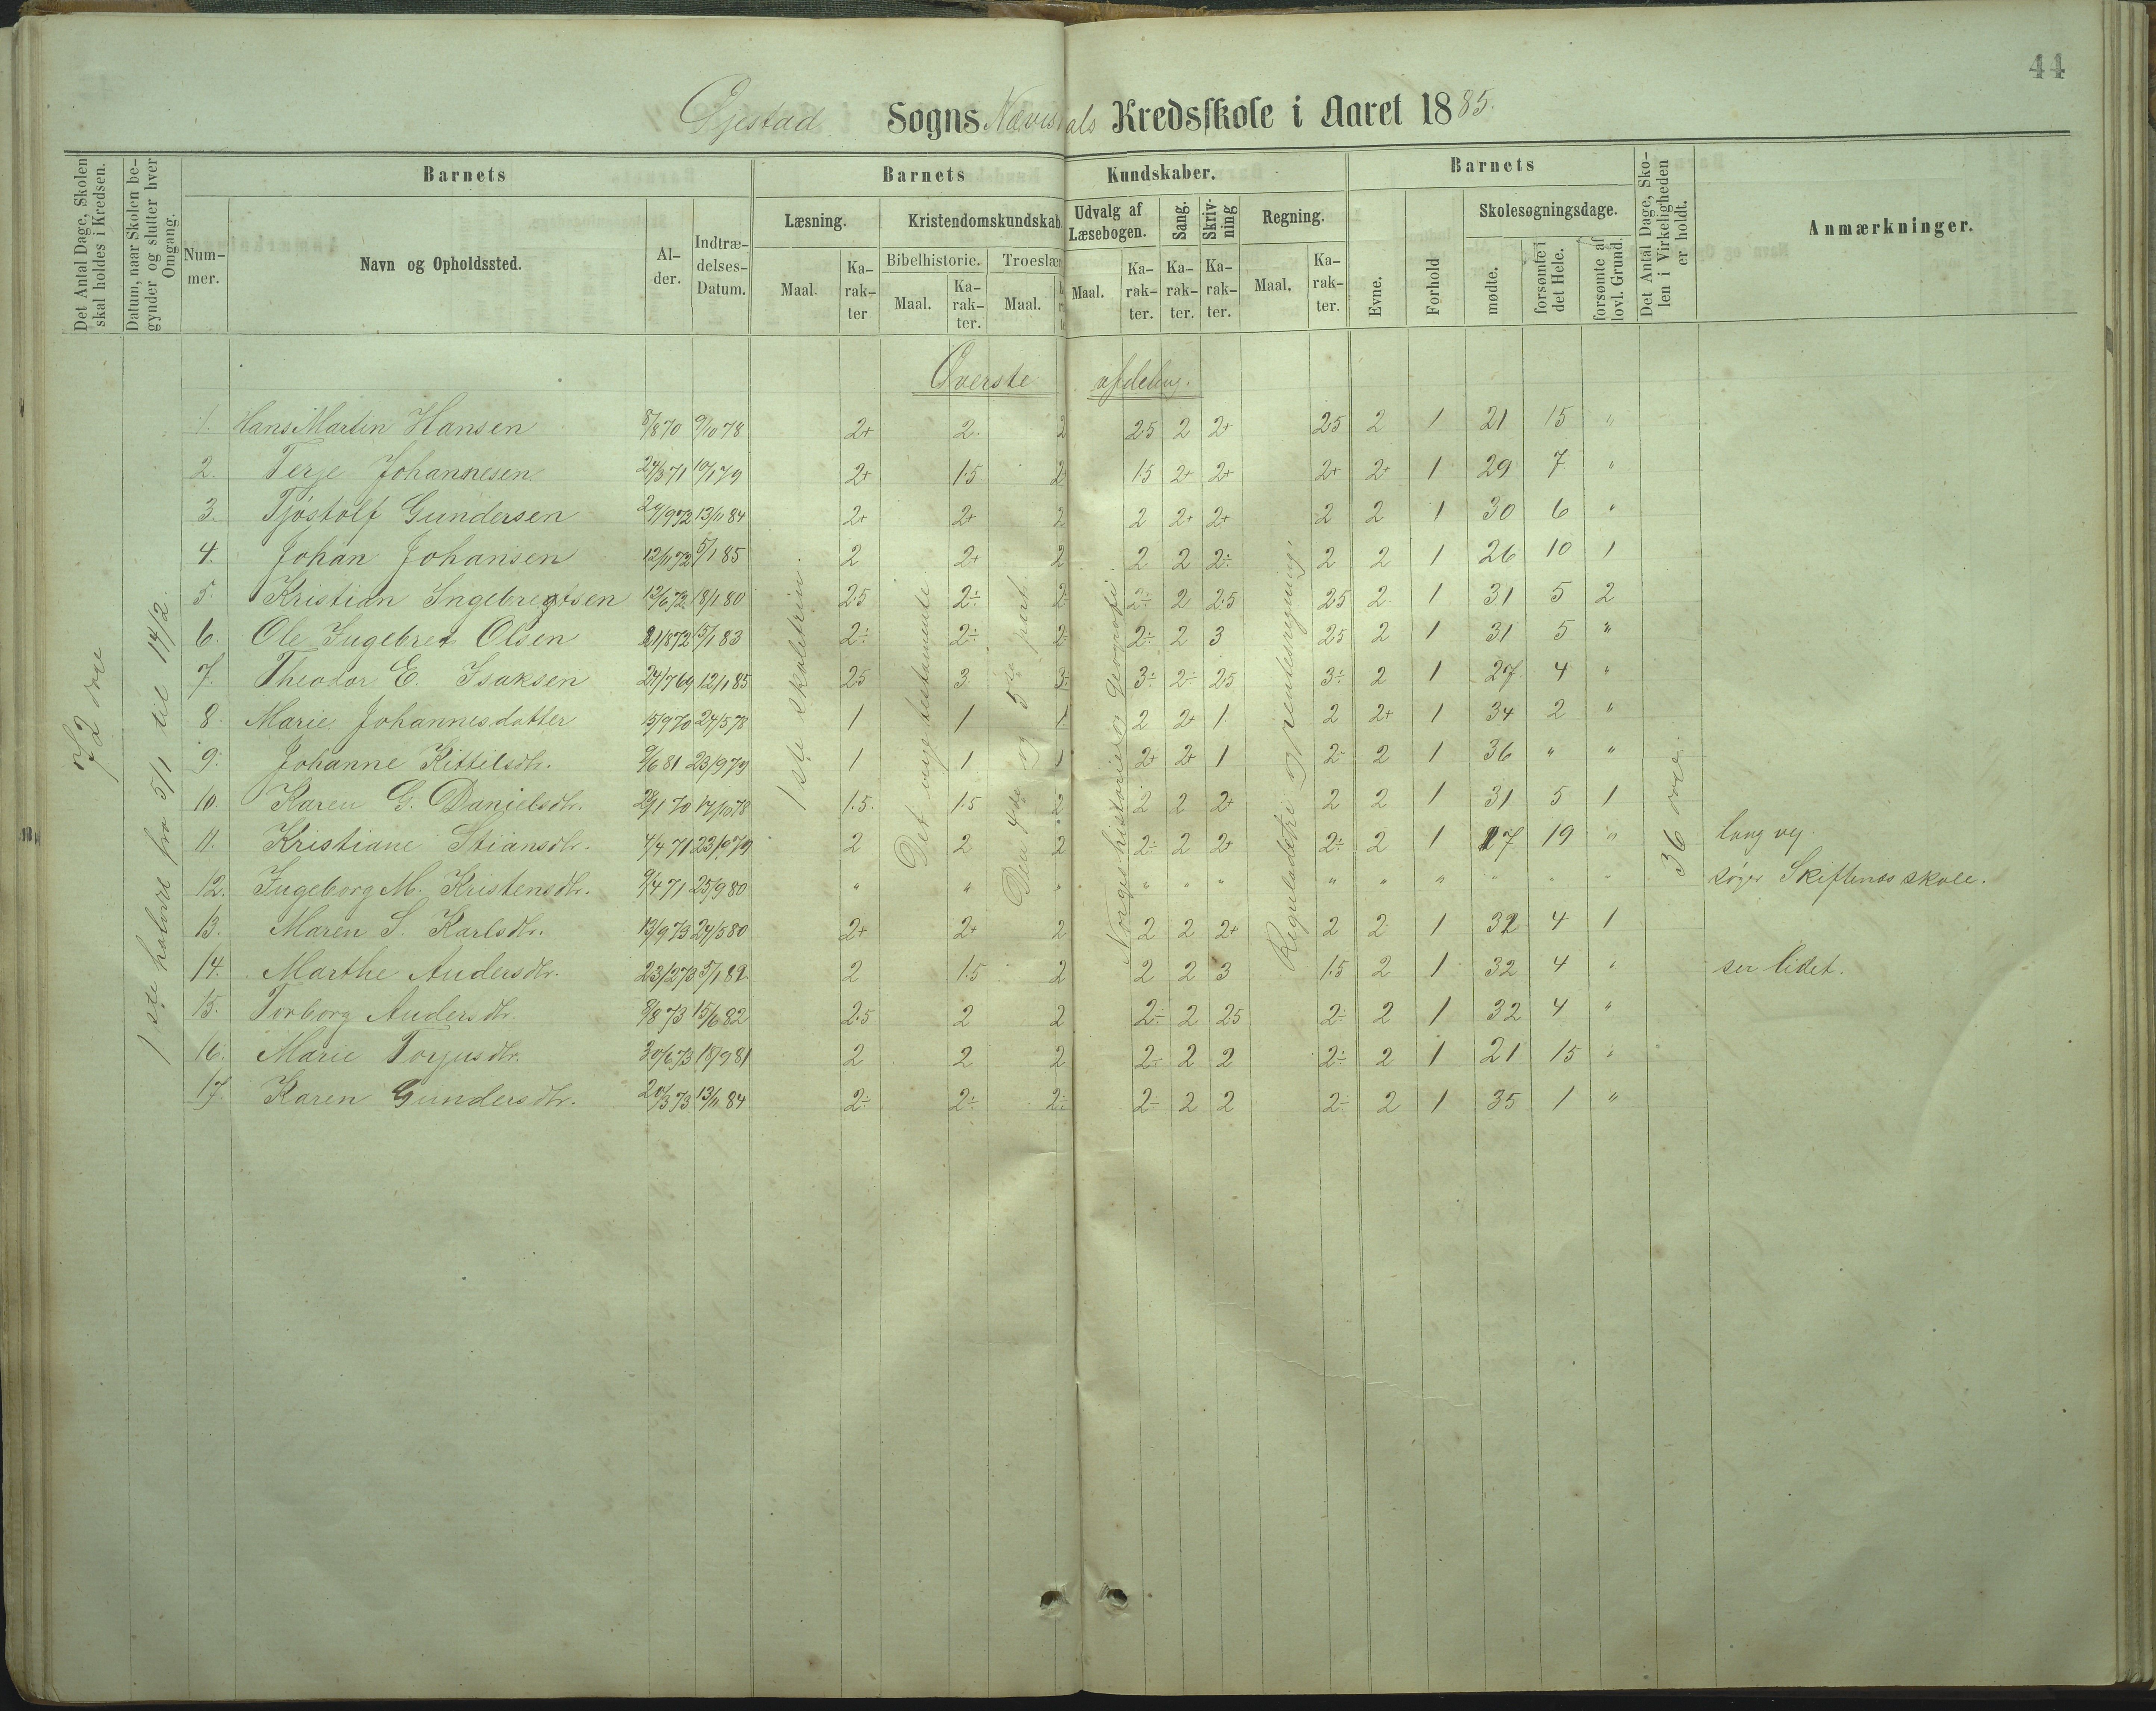 44
Øjestad Sogns Nævisdals Kredsskole i Aaret 1885.
Det Antal Dage, Skolen skal holdes i Kredsen.
Datum, naar Skolen begynder og slutter hver Omgang.
Barnets
Barnets Kundskaber.
Barnets
Det Antal Dage, Skolen i Virkeligheden er holdt.
Anmærkninger.
Nummer.
Navn og Opholdssted.
Alder.
Indtrædelses-Datum.
Læsning.
Kristendomskundskab.
Udvalg af Læsebogen.
Sang.
Skrivning
Regning.
Evne.
Forhold
Skolesøgningsdage.
Bibelhistorie.
Troeslær
Maal.
Karakter
Maal.
Karakter.
Maal.
Maal.
Karakter.
Karakter.
Karakter.
Maal.
Karakter.
mødte.
forsømte i det Hele.
forsømte af lovl. Grund.
Øverste afdeling.
72
1ste halvdel fra 5/1 til 14/2
1ste skoletrin.
Det nye testamente
Den 4de og 5te part.
Norges historie og Geografi.
Reguladetri og rentesregning.
36
1. Hans Martin Hansen 8/8 70 9/10 78 2+ 2 2 2.5 2 2+ 2.5 2 1 21 15 "
2. Terje Johannesen 24/3 71 10/1 79 2+ 1.5 2 1.5 2+ 2+ 2+ 2+ 1 29 7 "
3. Tjøstolf Gundersen 29/9 72 13/11 84 2+ 2+ 2 2 2+ 2+ 2 2 1 30 6 "
4. Johan Johansen 12/11 72 5/1 85 2 2+ 2 2 2 2÷ 2 2 1 26 10 1
5. Kristian Ingebregtsen 12/6 72 18/1 80 2.5 2÷ 2÷ 2÷ 2 2.5 2.5 2 1 31 5 2
6. Ole Ingebret Olsen 21/8 72 15/1 83 2÷ 2÷ 2÷ 2÷ 2 3 2.5 2 1 31 5 "
7. Theodor E. Isaksen 24/7 69 12/1 85 2.5 3 3÷ 3÷ 2÷ 2.5 3÷ 2 1 27 4 "
8. Marie Johannesdatter 15/9 70 24/5 78 1 1 1 2 2+ 1 2 2+ 1 34 2 "
9. Johanne Kittilsdtr. 9/6 81 23/9 79 1 1 1 2+ 2+ 1 2 2 1 36 " "
10. Karen G. Danielsdtr. 28/1 70 17/10 78 1.5 1.5 2 2 2 2+ 2 2 1 31 5 1
11. Kristiane Stiansdtr. 4/4 71 23/10 79 2 2 2 2÷ 2 2+ 2÷ 2 1 17 19 " lang vej.
12. Ingeborg M. Kristensdtr. 9/4 71 25/9 80 " " " " " " " " " " " " søger Skiftenæs skole.
13. Maren S. Karlsdtr. 13/9 73 24/5 80 2+ 2+ 2 2 2 2+ 2 2 1 32 4 1
14. Marthe Andersdtr. 23/12 73 5/1 82 2 1.5 2 2 2 3 1.5 2 1 32 4 " ser lidet.
15. Torborg Andersdtr. 8/8 73 15/6 82 2.5 2 2 2÷ 2 2.5 2÷ 2 1 32 4 "
16. Marie Torjusdtr. 30/6 73 18/9 81 2 2 2 2÷ 2 2 2÷ 2 1 21 15 "
17. Karen Gundersdtr. 20/3 73 13/11 84 2÷ 2÷ 2÷ 2÷ 2 2 2÷ 2 1 35 1 "